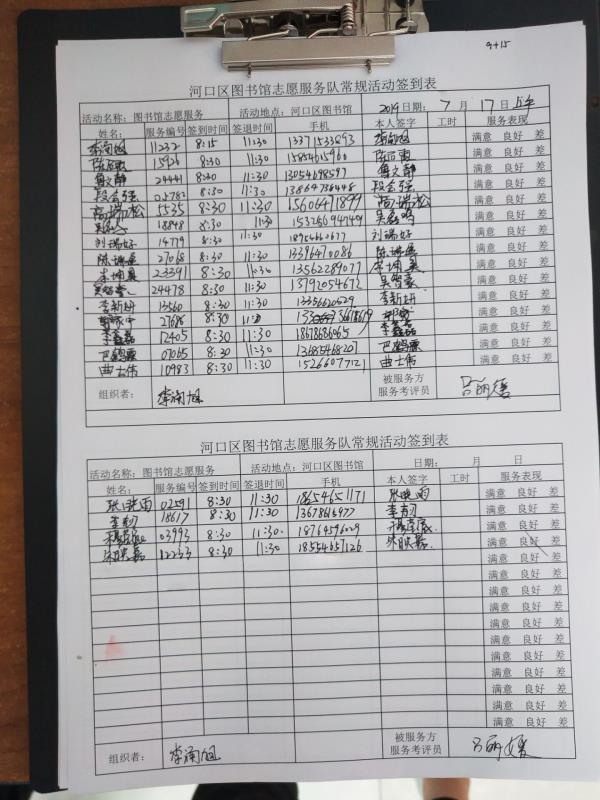 9+15
河口区图书馆志愿服务队常规活动签到表
活动名称：图书馆志愿服务 活动地点：河口区图书馆 2019日期：7月17日上午
姓名： 服务编号 签到时间 签退时间 手机 本人签字 工时 服务表现
11232 8:15 11:30 13371533093 满意 良好 差
15926 8:30 11:30 15854615960 满意 良好 差
24441 8:30 11:30 13054698597 满意 良好 差
段会强 02782 8:30 11:30 13864736448 段会强 满意 良好 差
高瑞松 5535 8:30 11:30 15606471899 高瑞松 满意 良好 差
18848 8:30 11:30 15325694749 满意 良好 差
刘瑞好 14779 8:30 11:30 18954660677 刘瑞好 满意 良好 差
27068 8:30 11:30 13396470086 满意 良好 差
23391 8:30 11:30 13562289077 满意 良好 差
24478 8:30 11:30 13792054672 满意 良好 差
李新珅 13560 8:30 11:30 13356620629 李新珅 满意 良好 差
27686 8:30 11:30 满意 良好 差
李鑫磊 12405 8:30 11:30 18678686065 李鑫磊 满意 良好 差
巴鹤霖 07065 8:30 11:30 13685468207 巴鹤霖 满意 良好 差
曲士伟 10983 8:30 11:30 15266077121 曲士伟 满意 良好 差
组织者： 被服务方
服务考评员
河口区图书馆志愿服务队常规活动签到表
活动名称：图书馆志愿服务 活动地点：河口区图书馆 日期： 月 日
姓名： 服务编号 签到时间 签退时间 手机 本人签字 工时 服务表现
张映雨 02591 8:30 11:30 18654651171 张映雨 满意 良好 差
18617 8:30 11:30 13678615977 满意 良好 差
03993 8:30 11:30 18764596029 满意 良好 差
12233 8:30 11:30 18554657126 满意 良好 差
满意 良好 差
满意 良好 差
满意 良好 差
满意 良好 差
满意 良好 差
满意 良好 差
满意 良好 差
满意 良好 差
满意 良好 差
满意 良好 差
组织者： 被服务方
服务考评员